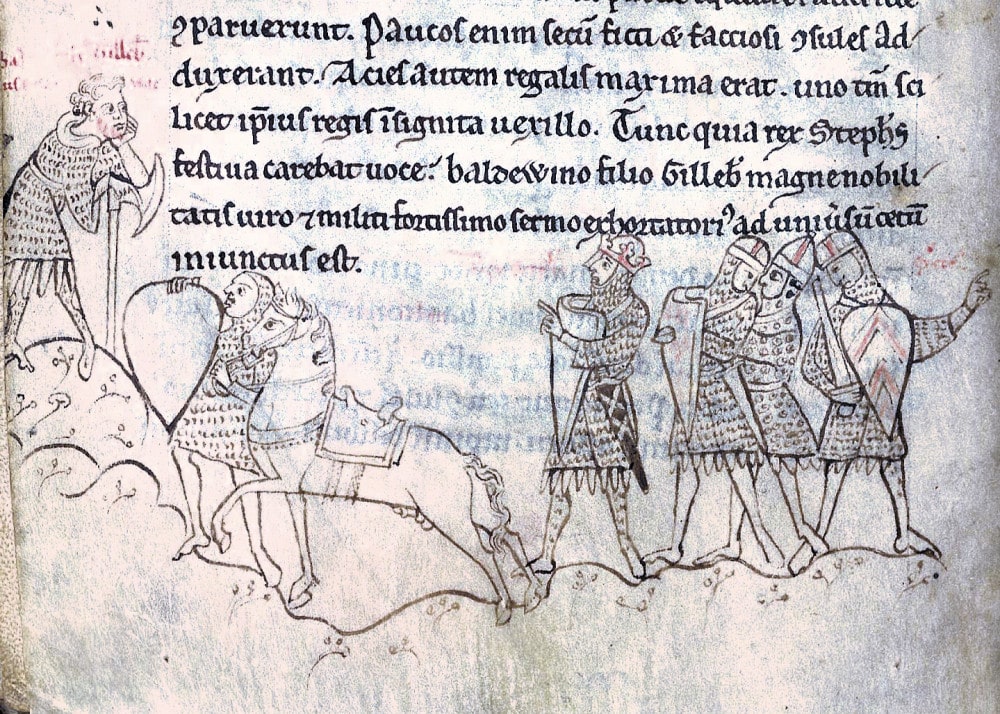 ꝯparuerunt. Paucos enim secū ficti & factiosi ꝯsules ad/
duxerant. Acies autem regalis maxima erat. uno tm̄ sci
licet ip̄ius regis ĩsignita uexillo. Tunc quia rex Stephꝰ
festiua carebat uoce: baldewino filio Gilleb̄ magne nobili/
tatis uiro ⁊ militi fortissimo sermo exhortatoriꝰ ad uniũsũ cetũ
iniunctus est.